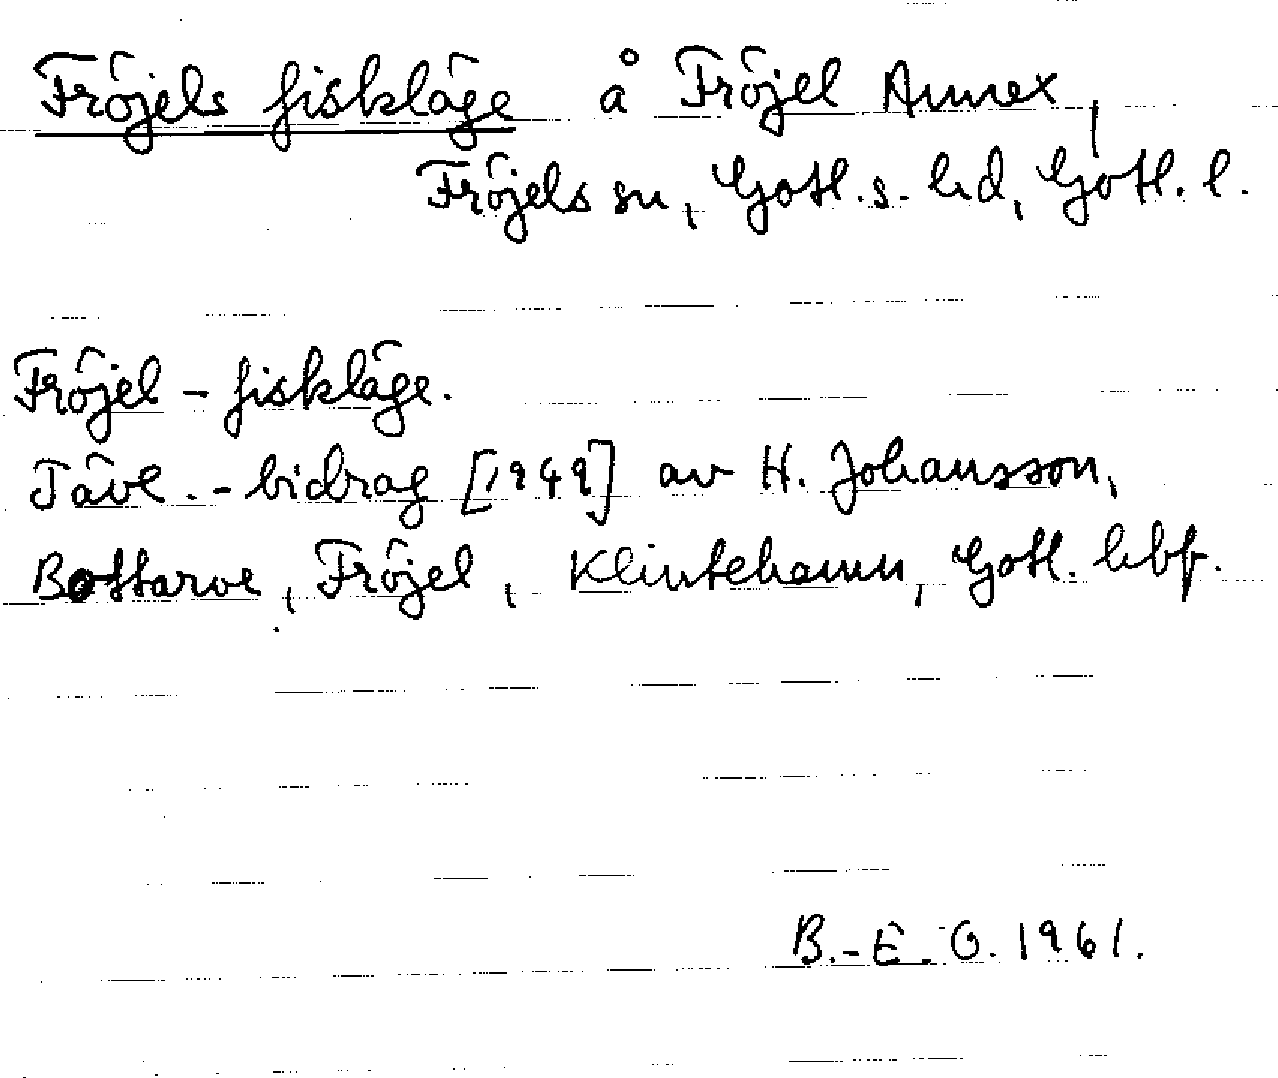 Fröjels fiskläge å Fröjel Annex,
Fröjels sn, Gotl. s. hd, Gotl. l.
Fröjel - fiskläge.
Tävl. - bidrag [1949] av H. Johansson,
Bottarve, Fröjel, Klintehamn, Gotl. hbf.
B.-E. O. 1961.